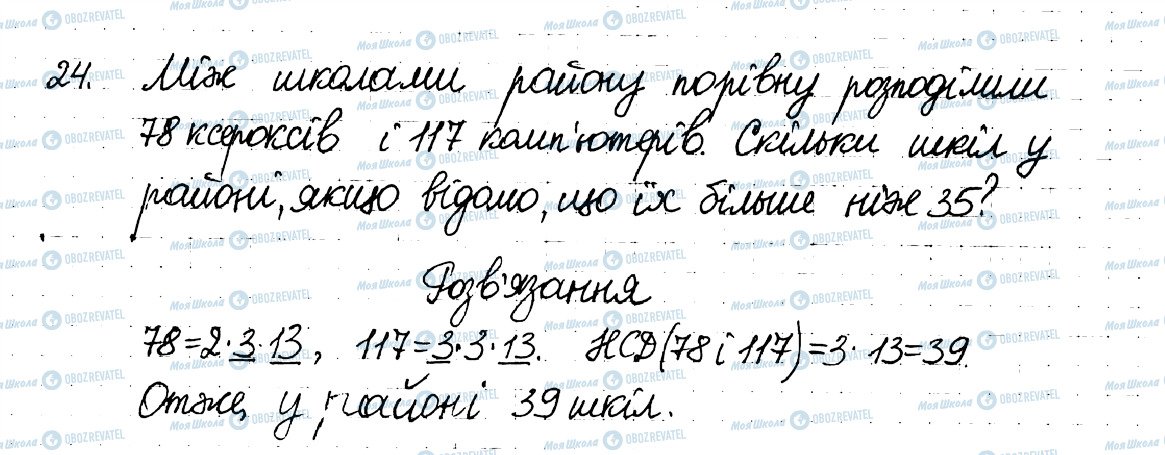 24. Між школами району порівну розподілили
78 ксероксів і 117 комп'ютерів. Скільки шкіл у
районі, якщо відомо, що їх більше ніж 35?
Розв'язання
78=2·3·13, 117=3·3·13. НСД(78 і 117)=3·13=39.
Отже, у районі 39 шкіл.